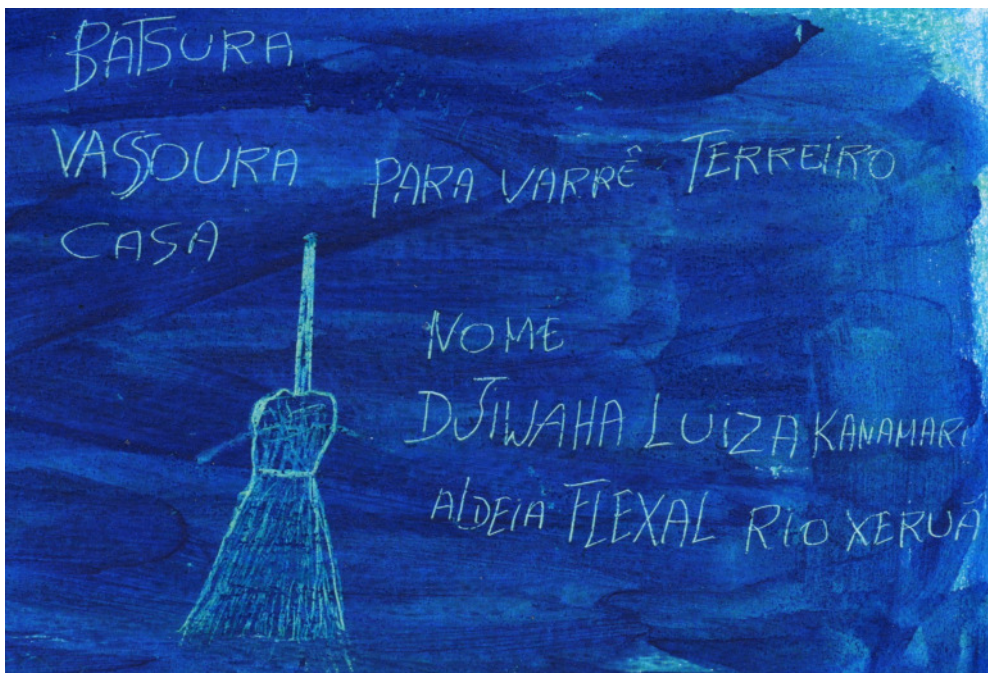 BATSURA
VASSOURA PARA VARRÊ TERREIRO
CASA
NOME
DJIWAHA LUIZA KANAMARI
ALDEIA FLEXAL RIO XERUÃ